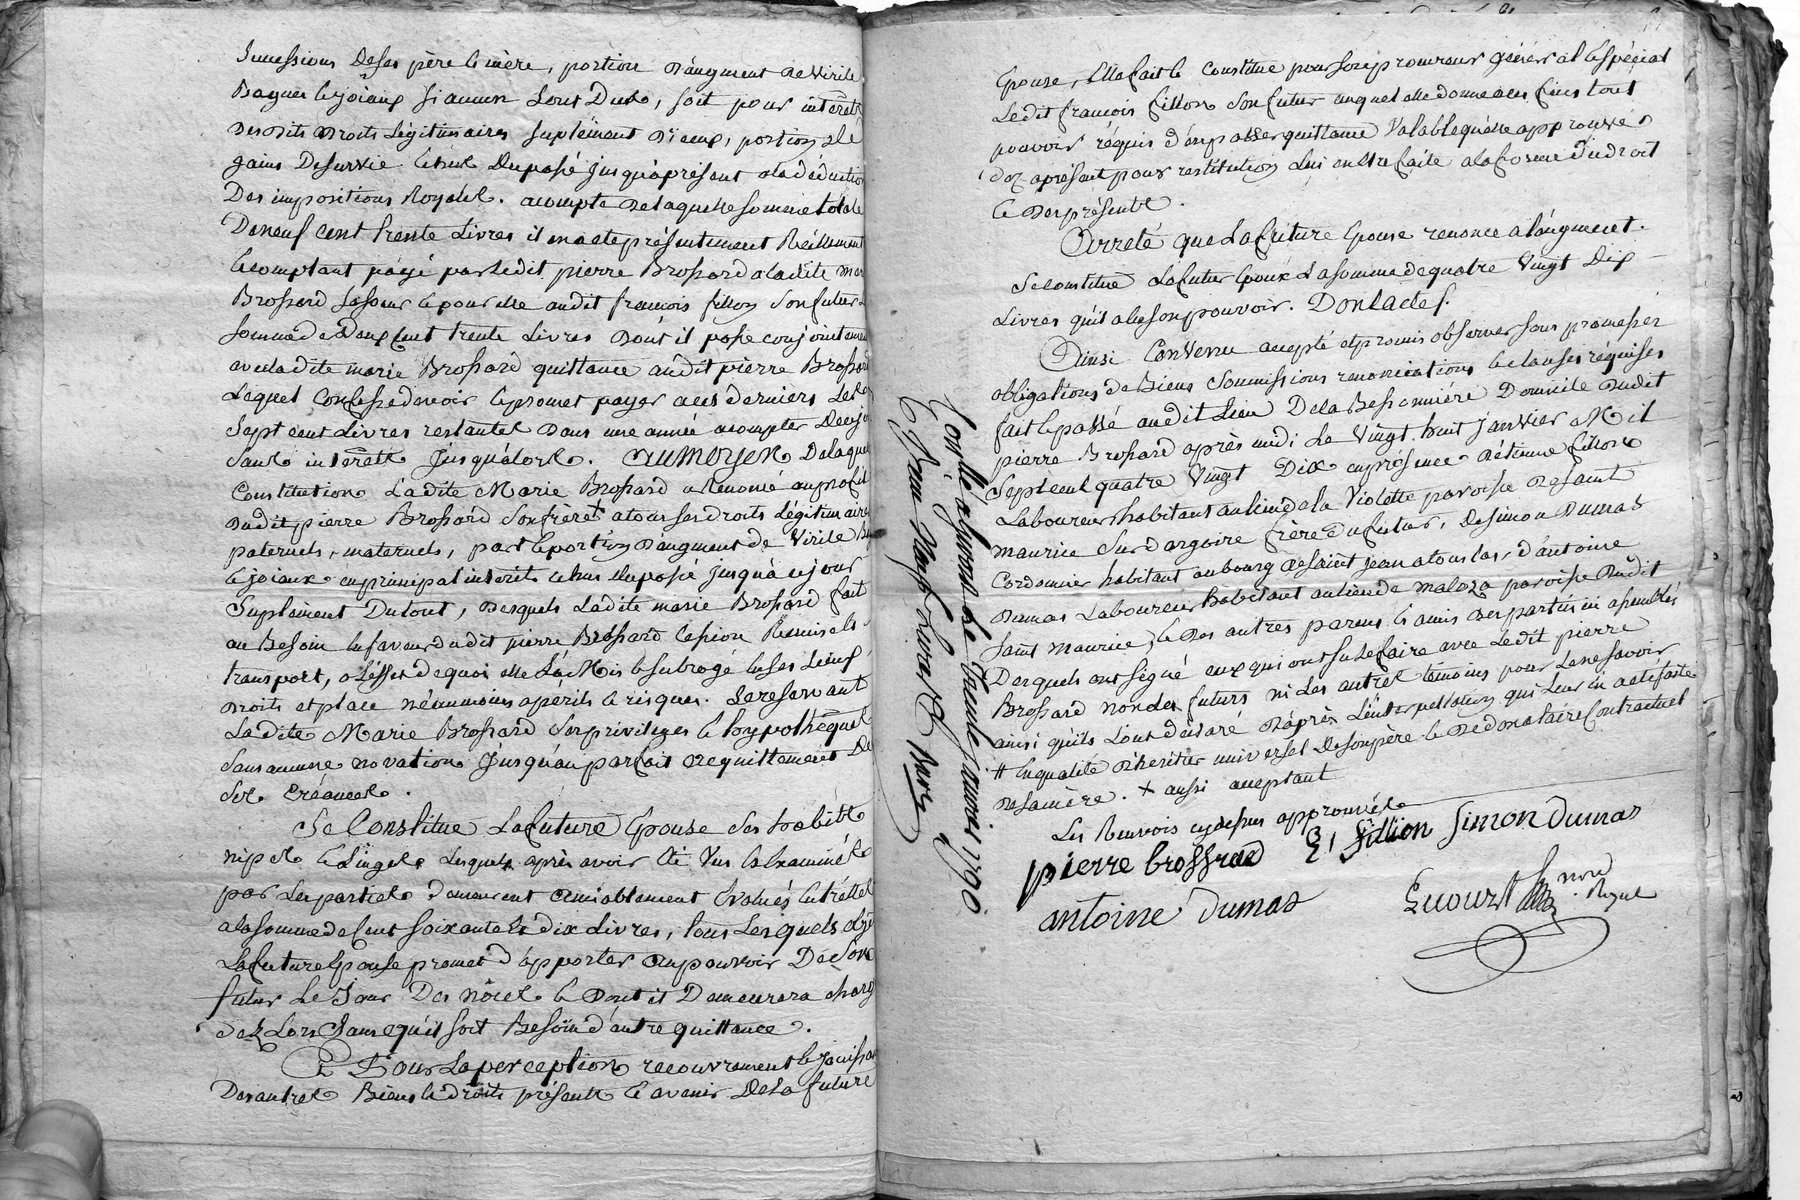 successions de ses père et mère, portion d'augment de virile
Bagues et joiaux si aucun sont dubs, soit pour intérêt
des dits droits légitimaires suplément d'iceux, portion de
gains de survie et tout du passé jusqu'à présent à la déduction
des impositions Royales. acompte de laquelle somme totale
de neuf cent trente Livres il en a été présentement Réellement
et comptant payé par ledit pierre Brossard à ladite Marie
Brossard sa sœur et pour elle audit françois fillion son futur la
somme de Deux Cent trente Livres dont il passe conjointement
avec ladite marie Brossard quittance audit pierre Brossard
Lequel confesse devoir et promet payer à ces derniers les
sept cent Livres restantes dans une année à compter de ce jour
sans intérêts jusqu'alors. au moyen de laquelle
Constitution ladite Marie Brossard a Renoncé au profit
dudit pierre Brossard son frère + à tous ses droits légitimaires
paternels, maternels, part et portion d'augment de virile Ba
et joiaux en principal intérêt et tout du passé jusqu'à ce jour
suplément du tout, desquels ladite marie Brossard fait
au Besoin en faveur dudit pierre Brossard Cession Remise et
transport, à l'effet de quoi elle l'a Mis et subrogé en ses Lieux
droits et place néanmoins à périls et risques. se reservant
Ladite Marie Brossard ses privilèges et hypothèques
sans aucune novation jusqu'au parfait acquittement de
ses Créances.
Se Constitue La future Epouse ses habits
nipes et Linges Lesquels après avoir été vus et examinés
par les parties demeurent amiablement évalués entr'elles
à la somme de Cent soixante et dix Livres, tous Lesquels objets
La future Epouse promet d'apporter au pouvoir de son
futur Le Jour des nôces et dont il Demeurera charg
dez Lors sans qu'il soit Besoin d'autre quittance.
Et Pour la perception recouvrement et jouissan
Des autres Biens et droits présents et avenir de la future
Controllé à givors le trente janvier 1790
Reçu neuf Livres
Epouse, Elle fait et constitue pour son procureur général et spécial
Ledit françois fillion son futur auquel elle donne à ces fins tout
pouvoir réquis d'en passer quittance valable qu'elle approuve
dez à présent pour restitution lui en être faite à la forme du droit
et des présentes.
Arreté que La future Epouse renonce à l'augment.
Se constitue Le futur Epoux La somme de quatre vingt Dix
Livres qu'il a en son pouvoir. Dont acte.
Ainsi Convenu accepté et promis observer sous promesses
obligations de Biens soumissions renonciations et clauses réquises
fait et passé audit Lieu De la Bessonnière Domicile dudit
pierre Brossard après midi Le vingt huit janvier Mil
sept cent quatre vingt Dix en présence d'étienne fillion
Laboureur habitant au lieu de la violette paroisse de saint
maurice sur dargoire frère du futur, de simon Dumas
Cordonnier habitant au bourg de saint jean à touslas, d'antoine
Dumas Laboureur habitant au lieu de paroisse dudit
saint maurice, et des autres parens et amis des parties ici assemblés
Desquels ont signé ceux qui ont su le faire avec Ledit pierre
Brossard non les futurs ni les autres témoins pour ne le savoir
ainsi qu'ils l'ont déclaré d'après l'interpellation qui leur en a été faite
# En qualité d'héritier universel de son père et de donataire Contractuel
de sa mère. + aussi acceptant
Les Renvois cy dessus approuvés
pierre brossard E. fillion Simon Dumas
antoine Dumas
nore
Royal